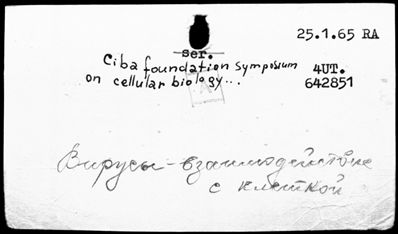 25.1.65 RA
ser.
Ciba foundation symposium 4UT.
on cellular biology... 642851
A
Вирусы - взаимодействие
с клеткой